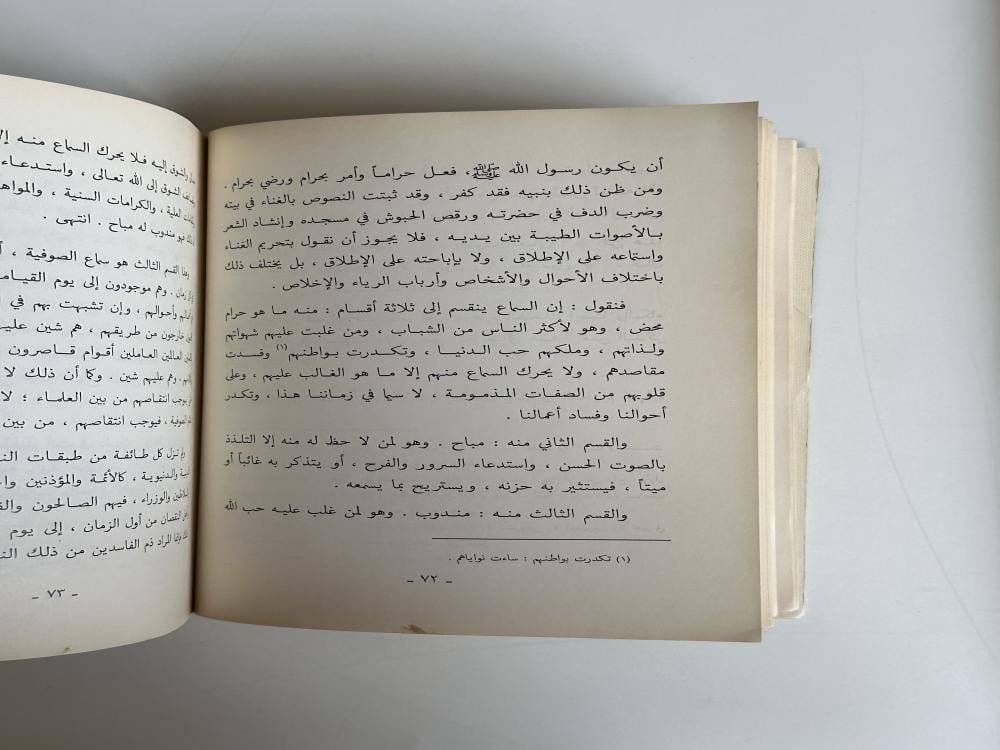 أن يكون رسول الله ﷺ، فعل حراماً وأمر بحرام ورضي بحرام .
ومن ظن ذلك بنبيه فقد كفر ، وقد ثبتت النصوص بالغناء في بيته
وضرب الدف في حضرته ورقص الحبوش في مسجده وإنشاد الشعر
بالأصوات الطيبة بين يديه ، فلا يجوز أن نقول بتحريم الغناء
واستماعه على الإطلاق ، ولا بإباحته على الإطلاق ، بل يختلف ذلك
باختلاف الأحوال والأشخاص وأرباب الرياء والإخلاص .
فنقول : إن السماع ينقسم إلى ثلاثة أقسام : منه ما هو حرام
محض ، وهو لأكثر الناس من الشباب ، ومن غلبت عليهم شهواتهم
ولذاتهم ، وملكهم حب الدنيا ، وتكدرت بواطنهم (١) وفسدت
مقاصدهم ، ولا يحرك السماع منهم إلا ما هو الغالب عليهم ، وعلى
قلوبهم من الصفات المذمومة ، لا سيما في زماننا هذا ، وتكدر
أحوالنا وفساد أعمالنا .
والقسم الثاني منه : مباح . وهو لمن لا حظ له منه إلا التلذذ
بالصوت الحسن ، واستدعاء السرور والفرح ، أو يتذكر به غائباً أو
ميتاً ، فيستثير به حزنه ، ويستريح بما يسمعه .
والقسم الثالث منه : مندوب . وهو لمن غلب عليه حب الله
(١) تكدرت بواطنهم : ساءت نواياهم .
- ٧٢ -
والشوق إليه فلا يحرك السماع منه إلا
الشوق إلى الله تعالى ، واستدعاء
العلية ، والكرامات السنية ، والمواهب
فهو مندوب له مباح . انتهى .
وهذا القسم الثالث هو سماع الصوفية ،
زمان . وهم موجودون إلى يوم القيامة
وأحوالهم ، وإن تشبهت بهم في
خارجون من طريقهم ، هم شين
العالمين العاملين أقوام قاصرون
، وهم عليهم شين . وكما أن ذلك لا
يوجب انتقاصهم من بين العلماء ؛
الصوفية ، فيوجب انتقاصهم ، من بين
ولم تزل كل طائفة من طبقات
والدنيوية ، كالأئمة والمؤذنين
والوزراء ، فيهم الصالحون
النقصان من أول الزمان ، إلى يوم
المراد ذم الفاسدين من ذلك
- ٧٣ -